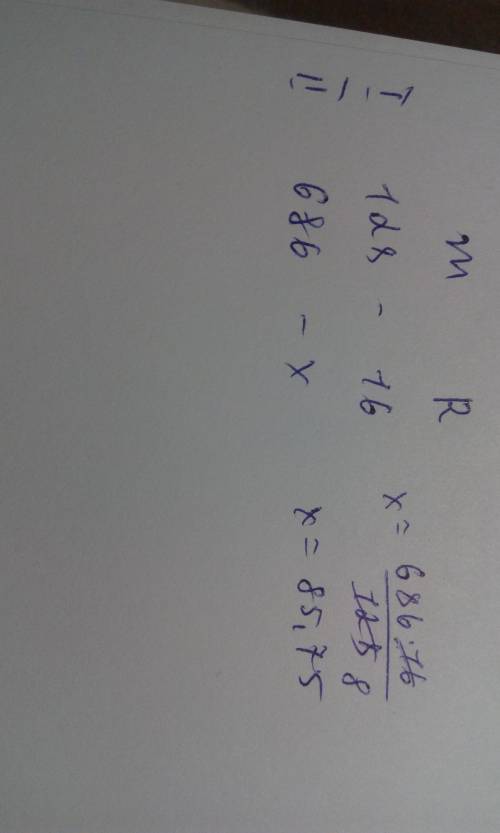 m R
I 128 - 16 x = 686·16
128 8
II 686 - x x = 85,75